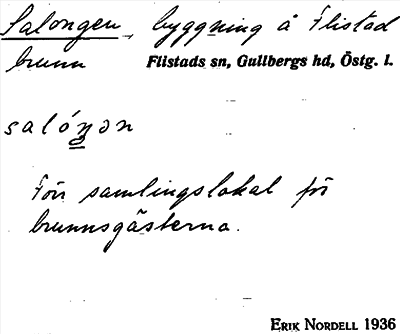 Salongen, byggning å Flistad
brunn Flistads sn, Gullbergs hd, Östg. l.
salóŋən
Förr samlingslokal för
brunnsgästerna.
ERIK NORDELL 1936